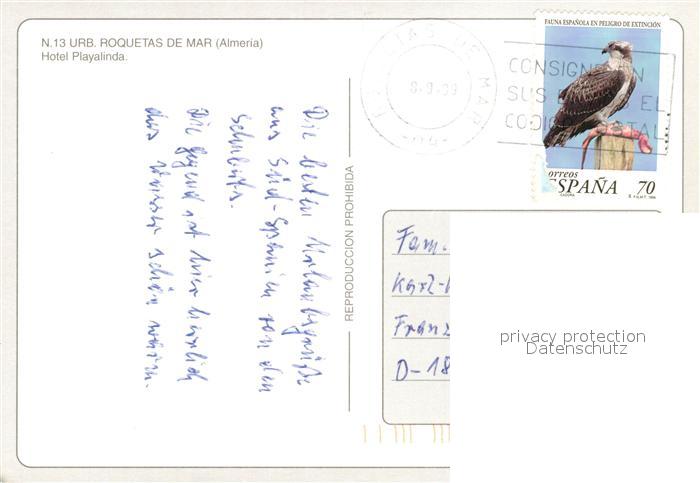 N.13 URB. ROQUETAS DE MAR (Almería)
Hotel Playalinda.
Die besten Urlaubsgrüße
aus Süd-Spanien von den
Die Gegend ist hier herrlich
das Wasser schön warm.
REPRODUCCION PROHIBIDA
DE MAR
8-9-99
-04-
CONSIGNE EN
SUS EL
CODIGO POSTAL
FAUNA ESPAÑOLA EN PELIGRO DE EXTINCIÓN
correos
ESPAÑA 70
Fam.
Karl-
Franz
D-18
privacy protection
Datenschutz